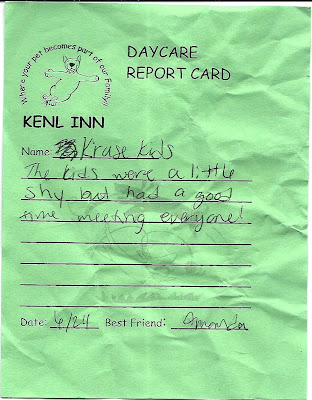 Where your pet becomes part of our Family!
DAYCARE
REPORT CARD
KENL INN
Name: Kruse Kids
The kids were a little
shy but had a good
time meeting everyone!
Date: 6/24 Best Friend: Amanda